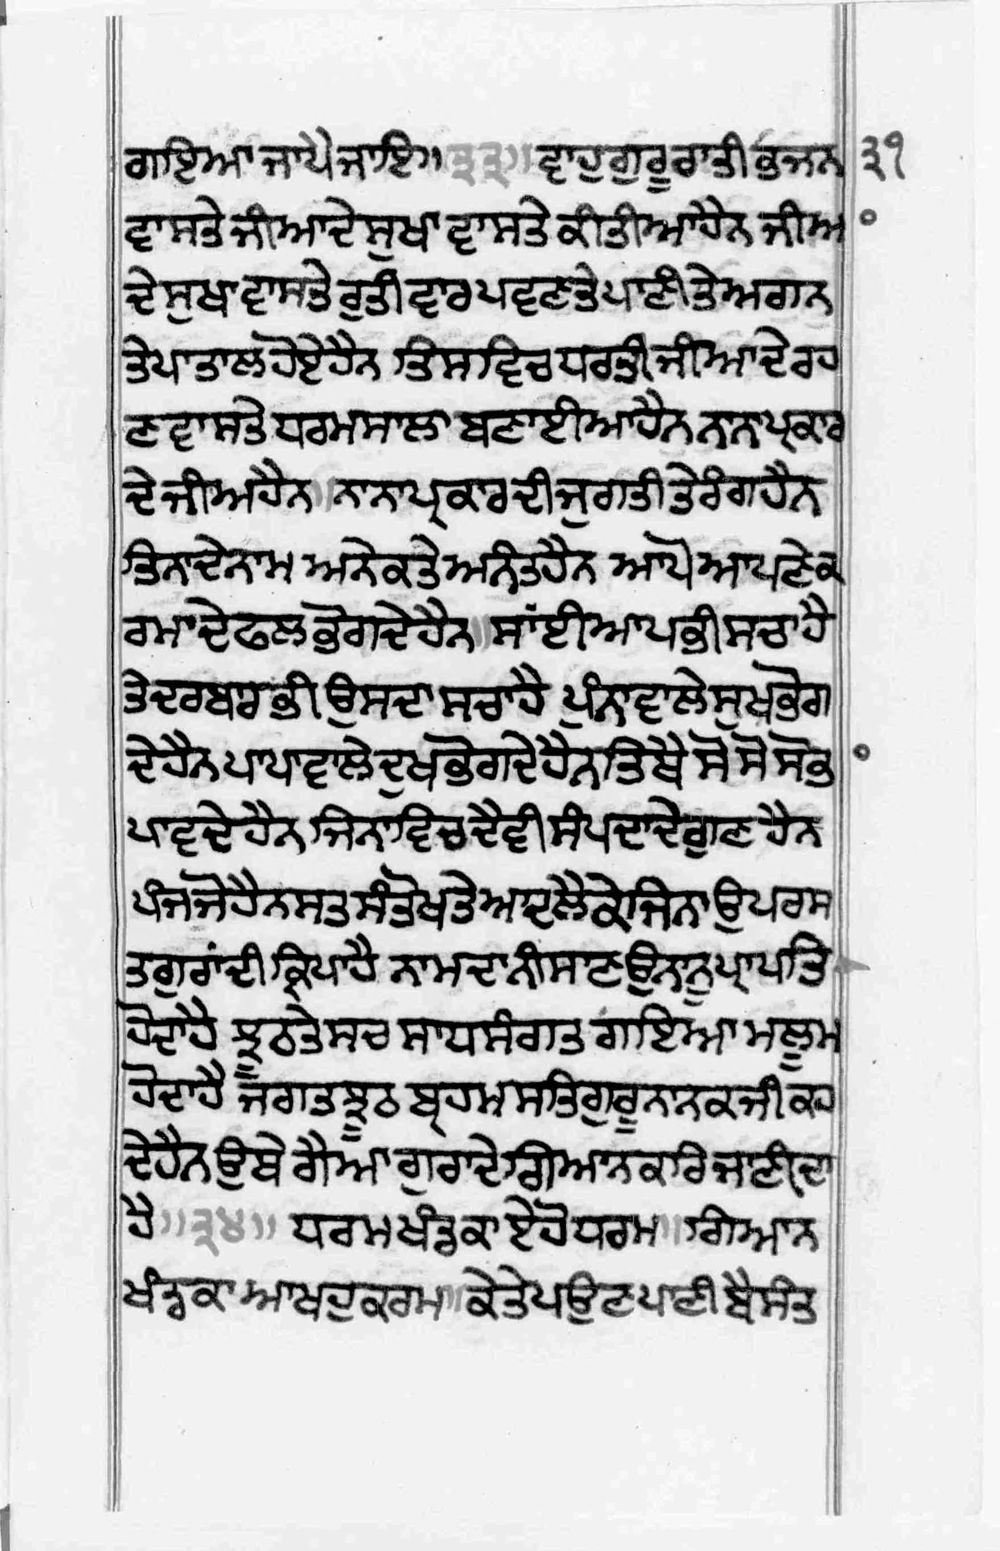 ਗਇਆ ਜਾਪੈ ਜਾਇ॥੩੩॥ ਵਾਹੁਗੁਰੂ ਰਾਤੀ ਭਜਨ ੩੧
ਵਾਸਤੇ ਜੀਆ ਦੇ ਸੁਖਾ ਵਾਸਤੇ ਕੀਤੀਆ ਹੈਨ ਜੀਅ
ਦੇ ਸੁਖਾ ਵਾਸਤੇ ਰੁਤੀ ਵਾਰ ਪਵਣ ਤੇ ਪਾਣੀ ਤੇ ਅਗਨ
ਤੇ ਪਾਤਾਲ ਹੋਏ ਹੈਨ ਤਿਸ ਵਿਚ ਧਰਤੀ ਜੀਆ ਦੇ ਰਹ
ਣ ਵਾਸਤੇ ਧਰਮਸਾਲਾ ਬਣਾਈਆ ਹੈਨ ਨਾਨਾ ਪ੍ਰਕਾਰ
ਦੇ ਜੀਅ ਹੈਨ॥ ਨਾਨਾ ਪ੍ਰਕਾਰ ਦੀ ਜੁਗਤੀ ਤੇ ਰੰਗ ਹੈਨ
ਤਿਨਾ ਦੇ ਨਾਮ ਅਨੇਕ ਤੇ ਅਨੰਤ ਹੈਨ ਆਪੋ ਆਪਣੇ ਕ
ਰਮਾ ਦੇ ਫਲ ਭੋਗਦੇ ਹੈਨ॥ ਸਾਂਈ ਆਪ ਭੀ ਸਚਾ ਹੈ
ਤੇ ਦਰਬਾਰ ਭੀ ਉਸਦਾ ਸਚਾ ਹੈ ਪੁੰਨਾ ਵਾਲੇ ਸੁਖ ਭੋਗ
ਦੇ ਹੈਨ ਪਾਪਾ ਵਾਲੇ ਦੁਖ ਭੋਗਦੇ ਹੈਨ ਤਿਥੈ ਸੋ ਸੋ ਸੋਭ
ਪਾਵਦੇ ਹੈਨ ਜਿਨਾ ਵਿਚ ਦੈਵੀ ਸੰਪਦਾ ਦੇ ਗੁਣ ਹੈਨ
ਪੰਜ ਜੋ ਹੈਨ ਸਤ ਸੰਤੋਖ ਤੇ ਆਦ ਲੈਕੇ ਜਿਨਾ ਉਪਰ ਸ
ਤਗੁਰਾਂ ਦੀ ਕ੍ਰਿਪਾ ਹੈ ਨਾਮ ਦਾ ਨੀਸਾਣ ਉਨ ਨੂ ਪ੍ਰਾਪਤਿ
ਹੋਦਾ ਹੈ ਝੂਠ ਤੇ ਸਚ ਸਾਧ ਸੰਗਤ ਗਇਆ ਮਲੂਮ
ਹੋਦਾ ਹੈ ਜਗਤ ਝੂਠ ਬ੍ਰਹਮ ਸਤਿ ਗੁਰੂ ਨਾਨਕ ਜੀ ਕਹ
ਦੇ ਹੈਨ ਉਥੇ ਗੈਆ ਗੁਰਾ ਦੇ ਗਿਆਨ ਕਰਿ ਜਾਣੀਦਾ
ਹੈ॥੩੪॥ ਧਰਮ ਖੰਡ ਕਾ ਏਹੋ ਧਰਮ॥ ਗਿਆਨ
ਖੰਡ ਕਾ ਆਖਹੁ ਕਰਮ॥ ਕੇਤੇ ਪਉਣ ਪਾਣੀ ਬੈਸੰਤ